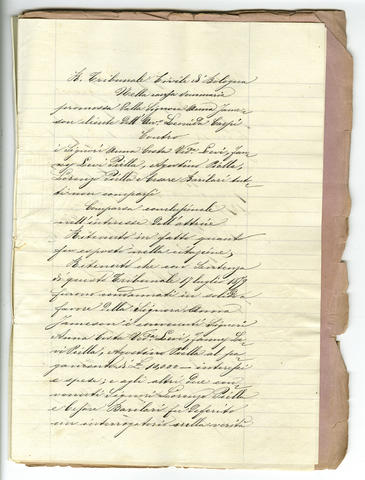 R. Tribunale Civile di Bologna
Nella causa sommaria
promossa dalla Signora Anna Jame-
son cliente dell'Avv. Leonida Carpi
Contro
i Signori Anna Costa Vda. Levi, Jan-
ny Levi Piella, Agostino Piella,
Lorenzo Piella e Cesare Barilari tut-
ti non comparsi
Comparsa conclusionale
nell'interesse dell'attrice
Ritenuto in fatto quant'
fu esposto nella citazione,
Ritenuto che con Sentenza
di questo Tribunale 17 luglio
furono condannati in solido a
favore della Signora Anna
Jameson i convenuti Signori
Anna Costa Vda. Levi, Janny Le-
vi Piella, Agostino Piella al pa-
gamento di £ 10,000 — interessi
e spese; e agli altri due con-
venuti Signori Lorenzo Piella
e Cesare Barilari fu deferito
un interrogatorio sulla verità